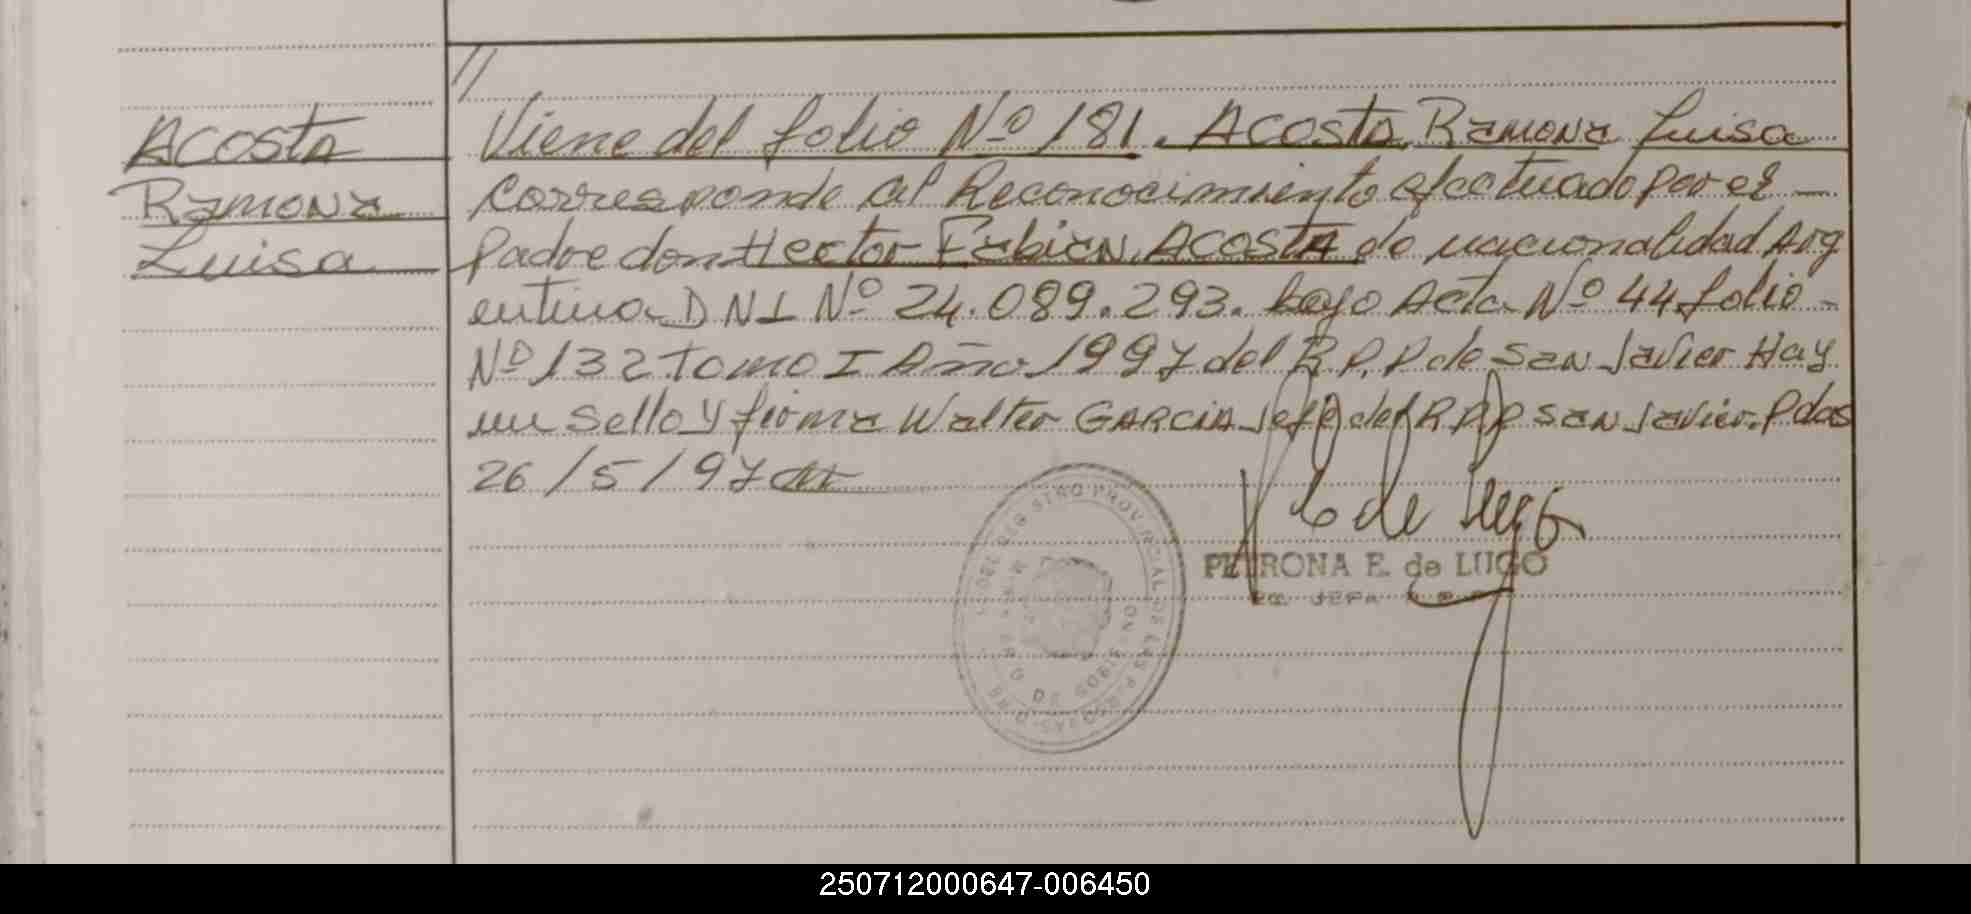 //
Acosta
Ramona
Luisa
Viene del folio Nº 181. Acosta, Ramona Luisa
Corresponde al Reconocimiento efectuado por el
Padre don Hector Fabian, ACOSTA de nacionalidad Arg
entino DNI Nº 24.089.293. bajo Acta Nº 44 folio
Nº 132 Tomo I Año 1997 del R.P.P de San Javier Hay
un Sello y firma Walter GARCIA Jefe del R.P.P San Javier. Pdas
26/5/97
PETRONA E. de LUGO
JEFA
REGISTRO PROVINCIAL DE LAS PERSONAS
250712000647-006450